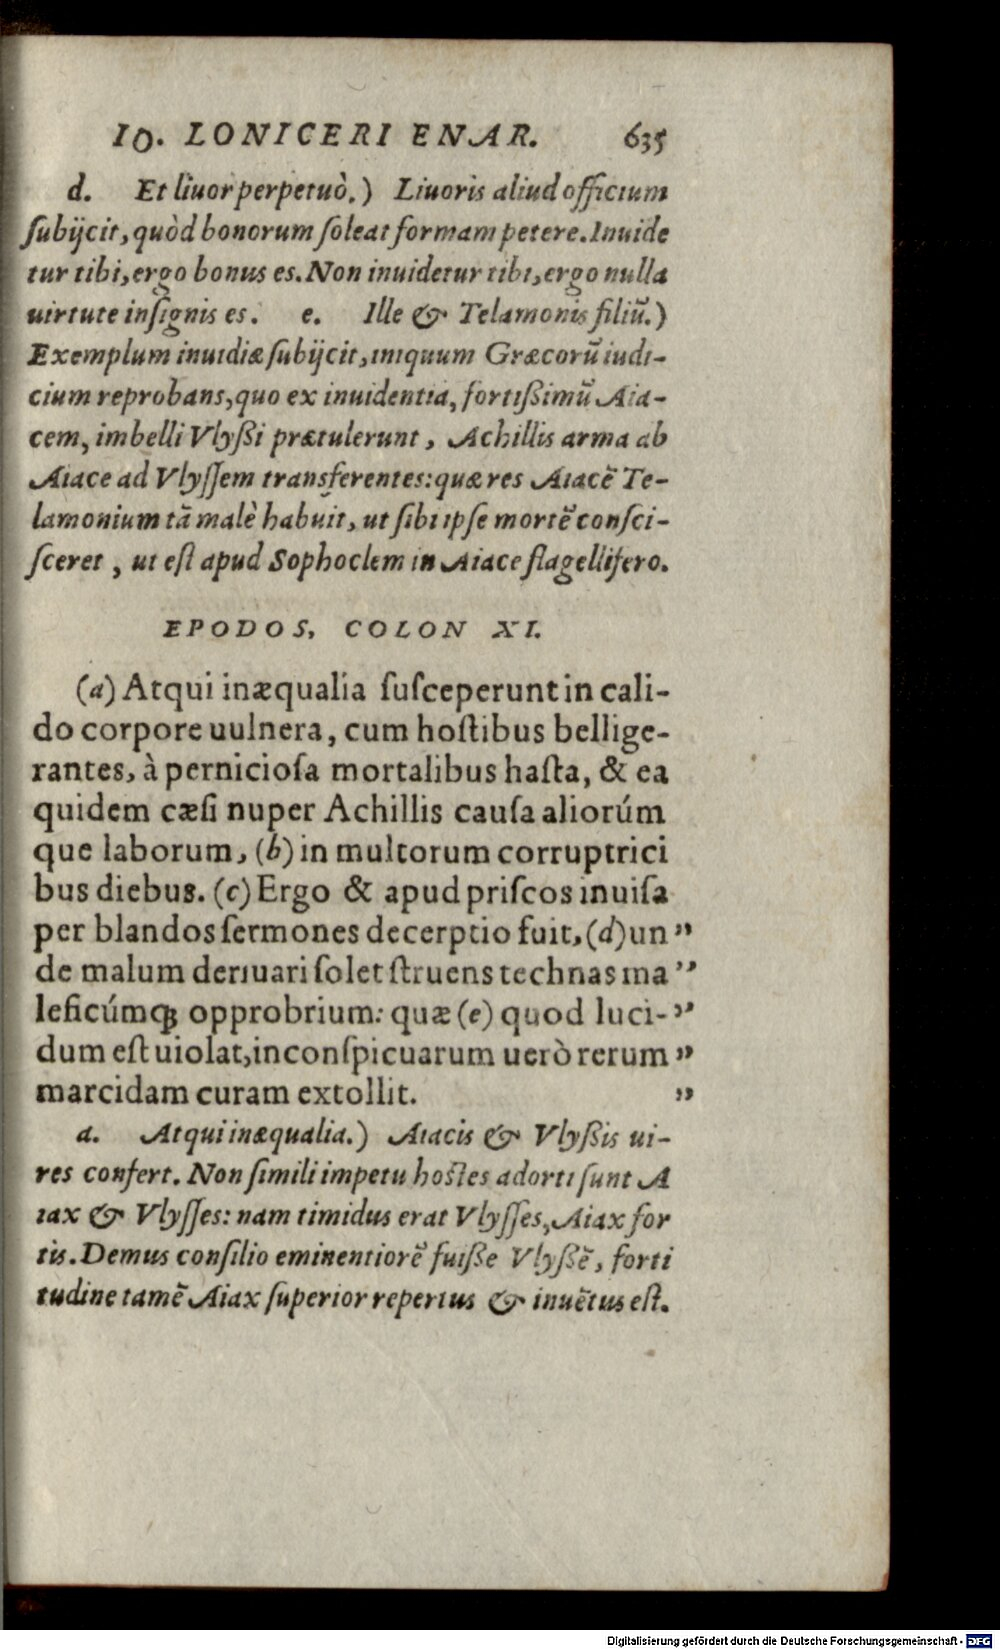 IO. LONICERI ENAR. 635
d. Et liuor perpetuò.) Liuoris aliud officium
ſubijcit, quòd bonorum ſoleat formam petere. Inuide
tur tibi, ergo bonus es. Non inuidetur tibi, ergo nulla
uirtute inſignis es. e. Ille & Telamonis filiū.)
Exemplum inuidiæ ſubijcit, iniquum Græcorū iudi-
cium reprobans, quo ex inuidentia, fortißimū Aia-
cem, imbelli Vlyßi prætulerunt, Achillis arma ab
Aiace ad Vlyſſem transferentes: quæ res Aiacē Te-
lamonium tā malè habuit, ut ſibi ipſe mortē conſci-
ſceret, ut eſt apud Sophoclem in Aiace flagellifero.
EPODOS, COLON XI.
(a) Atqui inæqualia ſuſceperunt in cali-
do corpore uulnera, cum hoſtibus bellige-
rantes, à pernicioſa mortalibus haſta, & ea
quidem cæſi nuper Achillis cauſa aliorúm
que laborum, (b) in multorum corruptrici
bus diebus. (c) Ergo & apud priſcos inuiſa
per blandos ſermones decerptio fuit, (d) un ”
de malum deriuari ſolet ſtruens technas ma ”
leficúmq́; opprobrium: quæ (e) quod luci- ”
dum eſt uiolat, inconſpicuarum uerò rerum ”
marcidam curam extollit. ”
a. Atqui inæqualia.) Aiacis & Vlyßis ui-
res confert. Non ſimili impetu hoſtes adorti ſunt A
iax & Vlyſſes: nam timidus erat Vlyſſes, Aiax for
tis. Demus conſilio eminentiorē fuiſſe Vlyßē, forti
tudine tamē Aiax ſuperior repertus & inuētus eſt.
Digitalisierung gefördert durch die Deutsche Forschungsgemeinschaft - DFG